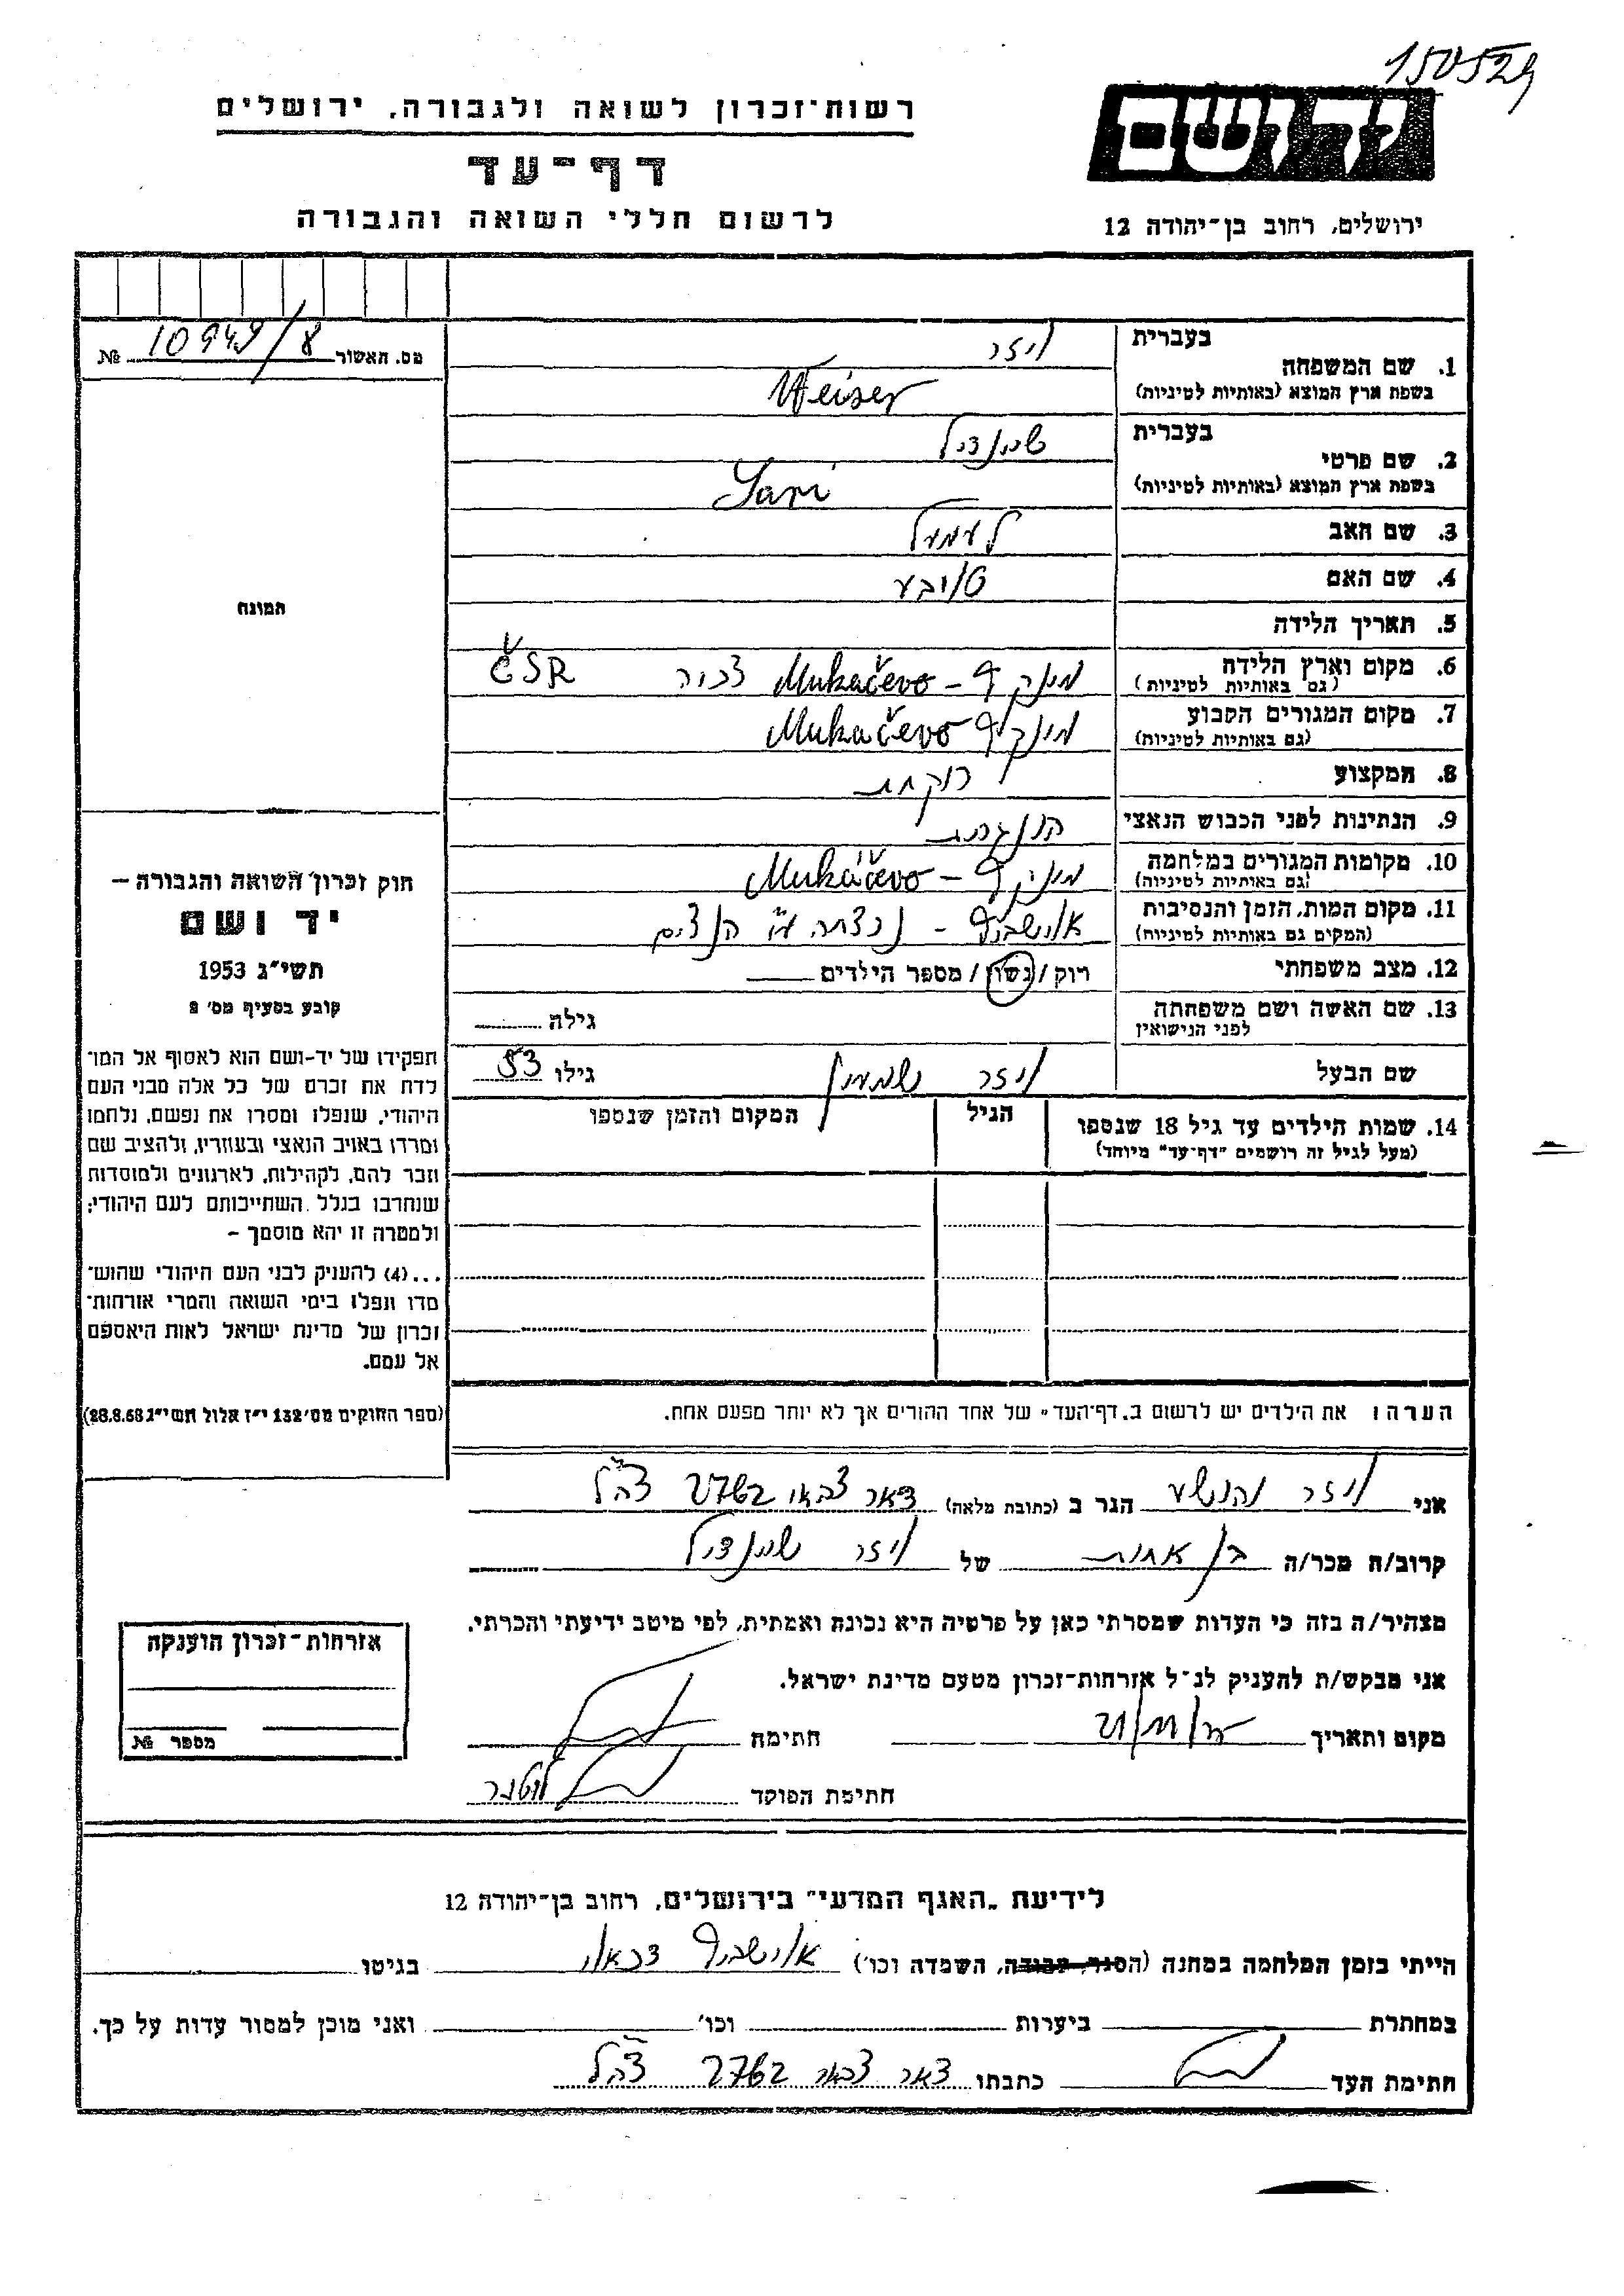 150529
יד ושם
רשות-זכרון לשואה ולגבורה, ירושלים
דף-עד
לרשום חללי השואה והגבורה
ירושלים, רחוב בן-יהודה 12
מס. האשור № 10949/8
בעברית
ויזר
1. שם המשפחה
בשפת ארץ המוצא (באותיות לטיניות)
Weiser
בעברית
שיינדיל
2. שם פרטי
בשפת ארץ המוצא (באותיות לטיניות)
Sari
3. שם האב
4. שם האם
5. תאריך הלידה
6. מקום וארץ הלידה
(גם באותיות לטיניות)
Mukačevo
ČSR
7. מקום המגורים הקבוע
(גם באותיות לטיניות)
Mukačevo
8. המקצוע
רוקחת
9. הנתינות לפני הכבוש הנאצי
10. מקומות המגורים במלחמה
(גם באותיות לטיניות)
Mukáčevo
11. מקום המות, הזמן והנסיבות
(המקום גם באותיות לטיניות)
אוישביץ - נרצחה ע"י הנצים
12. מצב משפחתי
רוק / נשוי / מספר הילדים
13. שם האשה ושם משפחתה
לפני הנישואין
גילה
שם הבעל
ויזר
גילו 53
14. שמות הילדים עד גיל 18 שנספו
(מעל לגיל זה רושמים "דף-עד" מיוחד)
הגיל
המקום והזמן שנספו
הערה: את הילדים יש לרשום ב"דף-העד" של אחד ההורים אך לא יותר מפעם אחת.
תמונה
חוק זכרון השואה והגבורה –
יד ושם
תשי"ג 1953
קובע בסעיף מס' 2
תפקידו של יד-ושם הוא לאסוף אל המו־
לדת את זכרם של כל אלה מבני העם
היהודי, שנפלו ומסרו את נפשם, נלחמו
ומרדו באויב הנאצי ובעוזריו, ולהציב שם
וזכר להם, לקהילות, לארגונים ולמוסדות
שנחרבו בגלל השתייכותם לעם היהודי;
ולמטרה זו יהא מוסמך –
...(4) להעניק לבני העם היהודי שהוש־
מדו ונפלו בימי השואה והמרי אזרחות־
זכרון של מדינת ישראל לאות היאספם
אל עמם.
(ספר החוקים מס' 132 י"ז אלול תשי"ג 28.8.53)
אני ויזר יהושע הגר ב (כתובת מלאה) דאר צבאי 2762 צה"ל
קרוב/ה מכר/ה בן אחות של ויזר שיינדיל
מצהיר/ה בזה כי העדות שמסרתי כאן על פרטיה היא נכונה ואמתית, לפי מיטב ידיעתי והכרתי.
אני מבקש/ת להעניק לנ"ל אזרחות-זכרון מטעם מדינת ישראל.
מקום ותאריך
חתימה
חתימת הפוקד
אזרחות-זכרון הוענקה
מספר №
לידיעת "האגף המדעי" בירושלים, רחוב בן-יהודה 12
הייתי בזמן המלחמה במחנה (הסגר, עבודה, השמדה וכו') אוישביץ דכאו בגיטו
במחתרת ביערות וכו' ואני מוכן למסור עדות על כך.
חתימת העד כתבתו דאר צבאי 2762 צה"ל